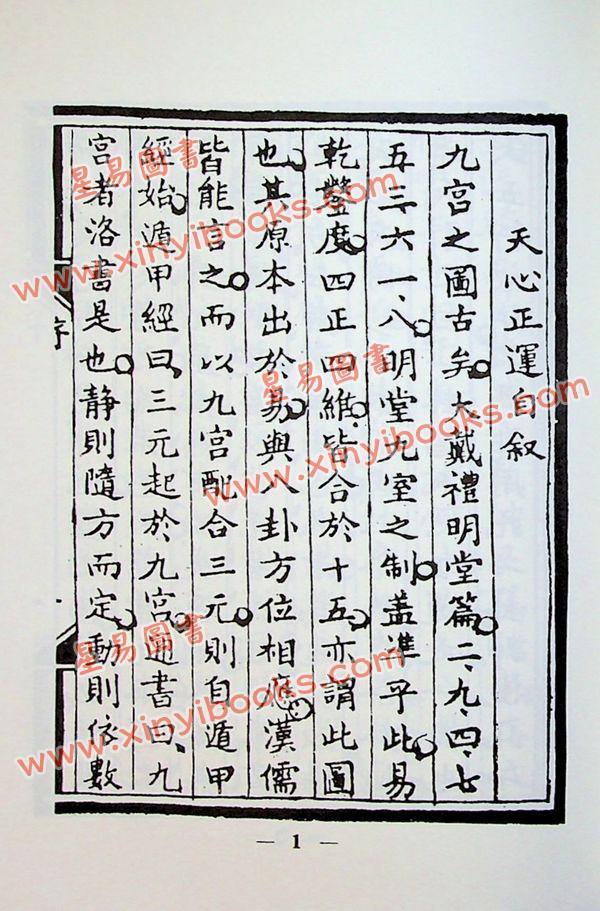 天心正運自叙
九宮之圖古矣。大戴禮明堂篇。二、九、四、七
五三六一、八。明堂九室之制。盖準乎此。易
乾鑿度。四正四維。皆合於十五。亦謂此圖
也。其原本出於易。與八卦方位相應。漢儒
皆能言之。而以九宮配合三元。則自遁甲
經始。遁甲經曰、三元起於九宮。通書曰、九
宮者洛書是也。静則隨方而定。動則依數
序
— 1 —
星易圖書
www.xinyibooks.com
星易圖書
www.xinyibooks.com
星易圖書
www.xinyibooks.com